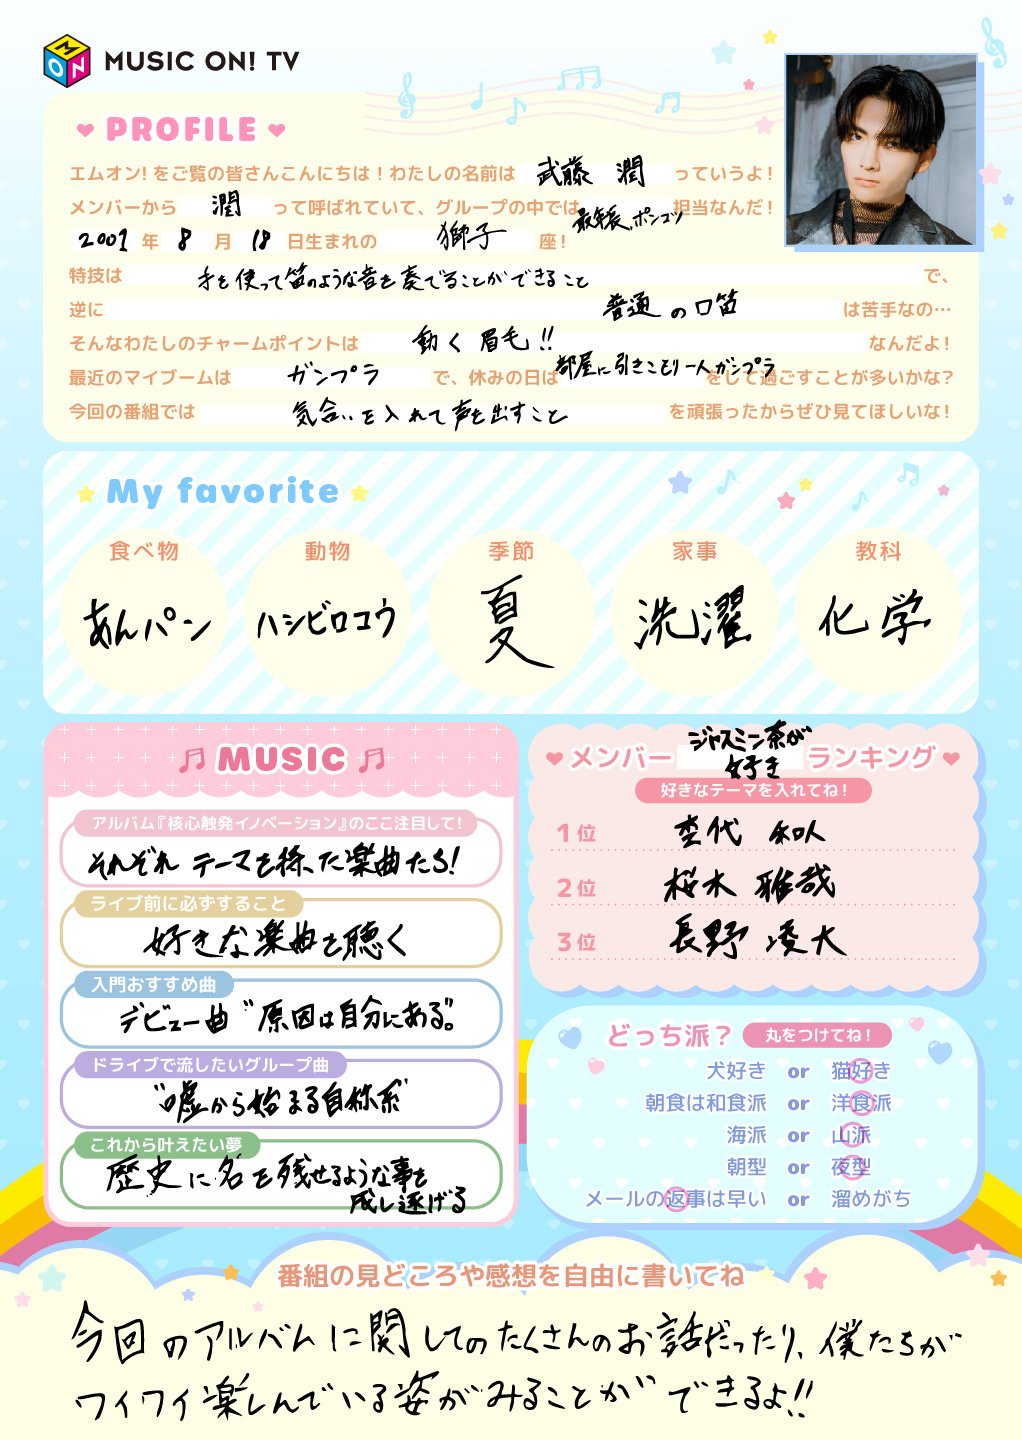 MON
MUSIC ON! TV
PROFILE
エムオン!をご覧の皆さんこんにちは!わたしの名前は 武藤 潤 っていうよ!
メンバーから 潤 って呼ばれていて、グループの中では 最年長、ポンコツ 担当なんだ!
2001年 8月 18日生まれの 獅子 座!
特技は 手を使って笛のような音を奏でることができること で、
逆に 普通の口笛 は苦手なの…
そんなわたしのチャームポイントは 動く眉毛!! なんだよ!
最近のマイブームは ガンプラ で、休みの日は 部屋に引きこもり一人ガンプラ をして過ごすことが多いかな?
今回の番組では 気合いを入れて声を出すこと を頑張ったからぜひ見てほしいな!
My favorite
食べ物 動物 季節 家事 教科
あんパン ハシビロコウ 夏 洗濯 化学
MUSIC
アルバム『核心触発イノベーション』のここ注目して!
それぞれテーマを持った楽曲たち!
ライブ前に必ずすること
好きな楽曲を聴く
入門おすすめ曲
デビュー曲"原因は自分にある。"
ドライブで流したいグループ曲
"嘘から始まる自称系"
これから叶えたい夢
歴史に名を残せるような事を
成し遂げる
メンバー ジャスミン茶が好き ランキング
好きなテーマを入れてね!
1位 杢代 和人
2位 桜木 雅哉
3位 長野 凌大
どっち派? 丸をつけてね!
犬好き or 猫好き
朝食は和食派 or 洋食派
海派 or 山派
朝型 or 夜型
メールの返事は早い or 溜めがち
番組の見どころや感想を自由に書いてね
今回のアルバムに関してのたくさんのお話だったり、僕たちが
ワイワイ楽しんでいる姿がみることができるよ!!